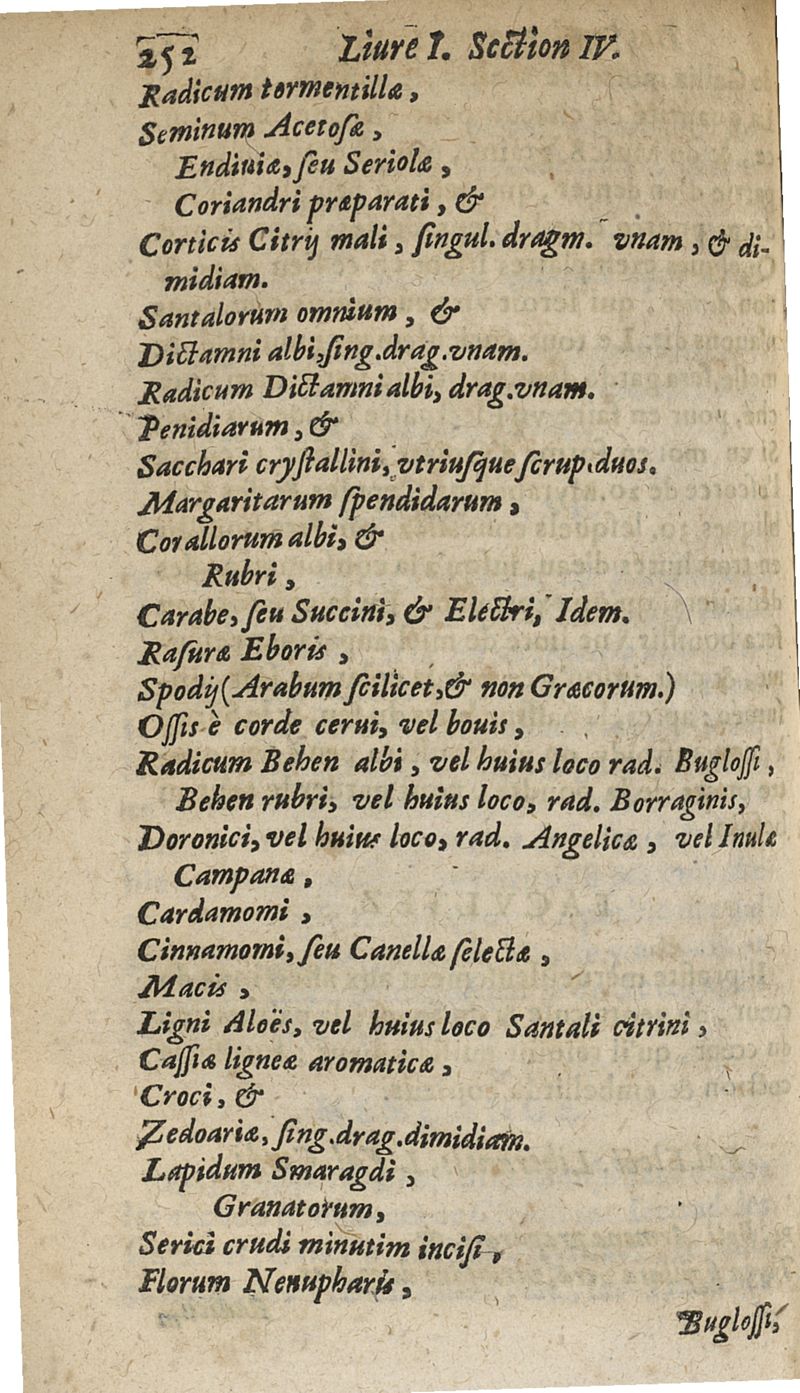 252 Liure I. Section IV.
Radicum tormentillæ,
Seminum Acetoſæ,
Endiuiæ, ſeu Seriolæ,
Coriandri præparati, &
Corticis Citrij mali, ſingul. dragm. vnam, & di-
midiam.
Santalorum omnium, &
Dictamni albi, ſing. drag. vnam.
Radicum Dictamni albi, drag. vnam.
Penidiarum, &
Sacchari cryſtallini, vtriuſque ſcrup. duos.
Margaritarum ſpendidarum,
Corallorum albi, &
Rubri,
Carabe, ſeu Succini, & Electri, Idem.
Raſuræ Eboris,
Spodij (Arabum ſcilicet, & non Græcorum.)
Oſſis è corde cerui, vel bouis,
Radicum Behen albi, vel huius loco rad. Bugloſſi,
Behen rubri, vel huius loco, rad. Borraginis,
Doronici, vel huius loco, rad. Angelicæ, vel Inulæ
Campanæ,
Cardamomi,
Cinnamomi, ſeu Canellæ ſelectæ,
Macis,
Ligni Aloës, vel huius loco Santali citrini,
Caſſiæ ligneæ aromaticæ,
Croci, &
Zedoariæ, ſing. drag. dimidiam.
Lapidum Smaragdi,
Granatorum,
Serici crudi minutim inciſi,
Florum Nenupharis,
Bugloſſi,